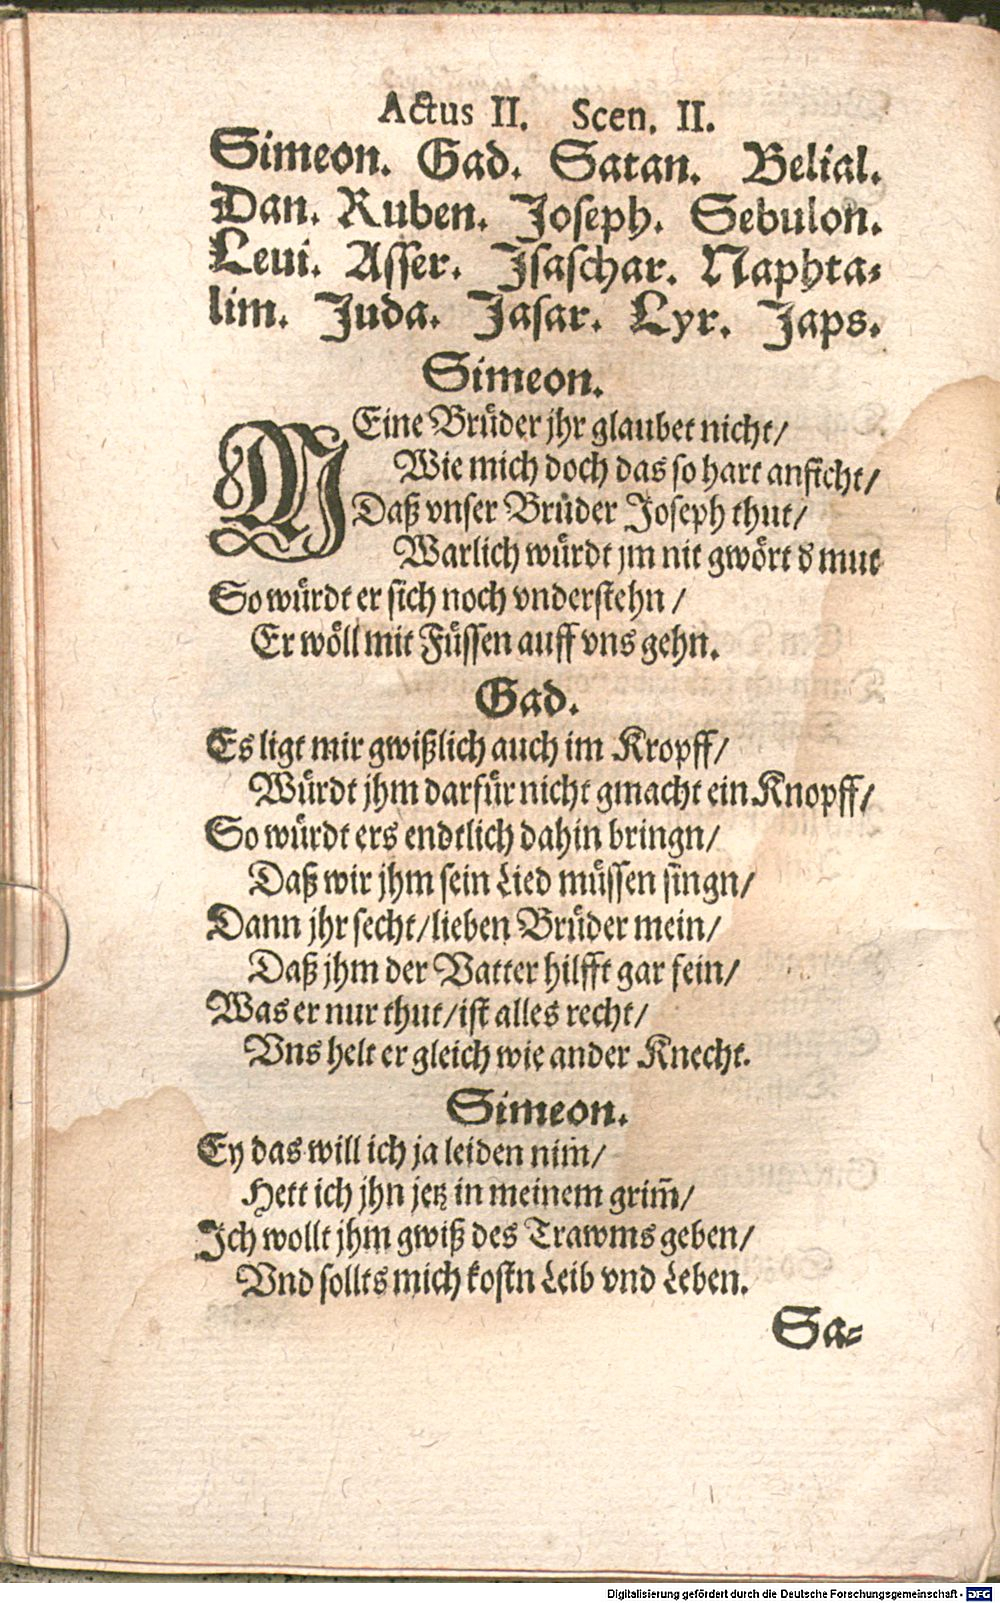 Actus II. Scen. II.
Simeon. Gad. Satan. Belial.
Dan. Ruben. Joseph. Sebulon.
Leui. Asser. Jsaschar. Naphta-
lim. Juda. Jasar. Lyr. Japs.
Simeon.
MEine Brüder jhr glaubet nicht/
Wie mich doch das so hart anficht/
Daß vnser Brüder Joseph thut/
Warlich würdt jm nit gwört d mut
So würdt er sich noch vnderstehn /
Er wöll mit Füssen auff vns gehn.
Gad.
Es ligt mir gwißlich auch im Kropff/
Würdt jhm darfür nicht gmacht ein Knopff/
So würdt ers endtlich dahin bringn/
Daß wir jhm sein Lied müssen singn/
Dann jhr secht/lieben Brüder mein/
Daß jhm der Vatter hilfft gar fein/
Was er nur thut/ist alles recht/
Vns helt er gleich wie ander Knecht.
Simeon.
Ey das will ich ja leiden nim̃/
Hett ich jhn jetz in meinem grim̃/
Jch wollt jhm gwiß des Trawms geben/
Vnd sollts mich kostn Leib vnd Leben.
Sa-
Digitalisierung gefördert durch die Deutsche Forschungsgemeinschaft - DFG